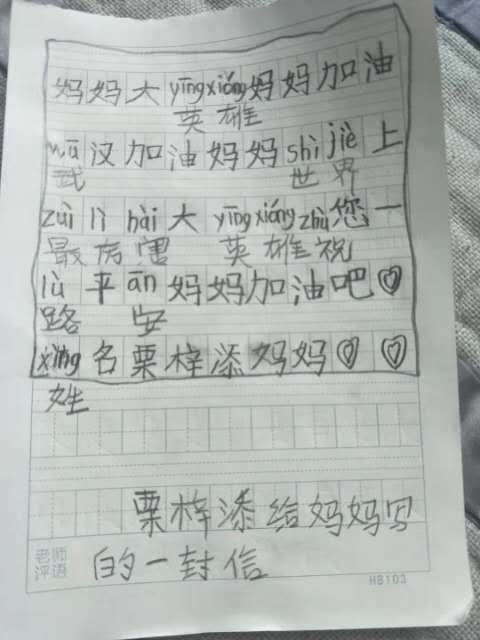 妈妈大yīngxióng妈妈加油
英雄
wǔ汉加油妈妈shìjiè上
武 世界
zuì lì hài 大 yīng xióng zhù 您一
最厉害 英雄祝
lù 平 ān 妈妈加油吧♡
路 安
xìng 名栗梓添妈妈♡♡
姓
栗梓添给妈妈写
的一封信
老师
评语
HB103